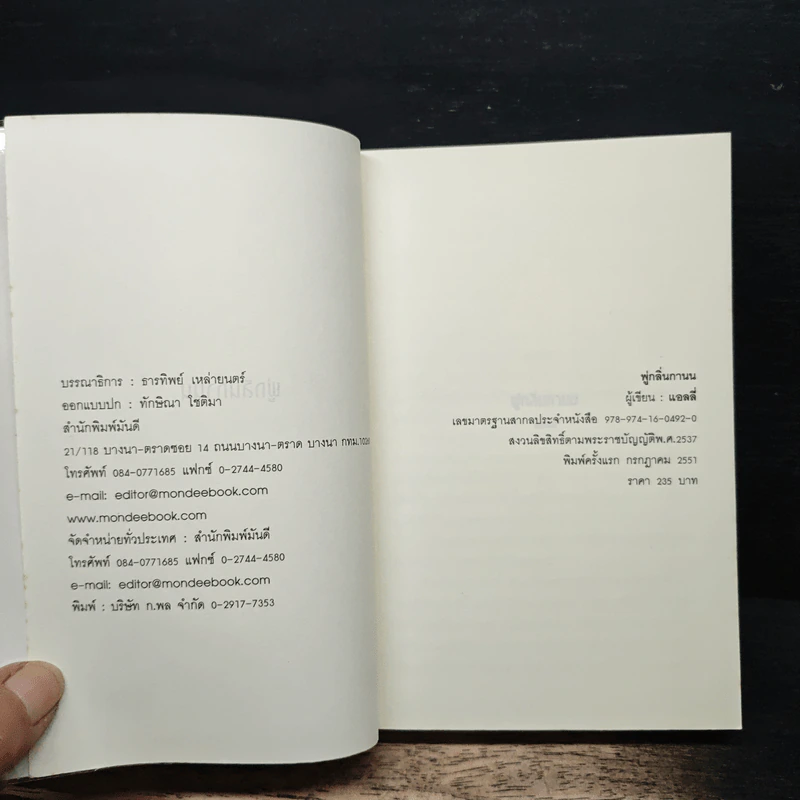 บรรณาธิการ : ธารทิพย์ เหล่ายนตร์
ออกแบบปก : ทักษิณา โชติมา
สำนักพิมพ์มันดี
21/118 บางนา-ตราดซอย 14 ถนนบางนา-ตราด บางนา กทม.10260
โทรศัพท์ 084-0771685 แฟกซ์ 0-2744-4580
e-mail: editor@mondeebook.com
www.mondeebook.com
จัดจำหน่ายทั่วประเทศ : สำนักพิมพ์มันดี
โทรศัพท์ 084-0771685 แฟกซ์ 0-2744-4580
e-mail: editor@mondeebook.com
พิมพ์ : บริษัท ก.พล จำกัด 0-2917-7353
ฟูกลิ่นกานน
ผู้เขียน : แอลลี่
เลขมาตรฐานสากลประจำหนังสือ 978-974-16-0492-0
สงวนลิขสิทธิ์ตามพระราชบัญญัติพ.ศ.2537
พิมพ์ครั้งแรก กรกฎาคม 2551
ราคา 235 บาท